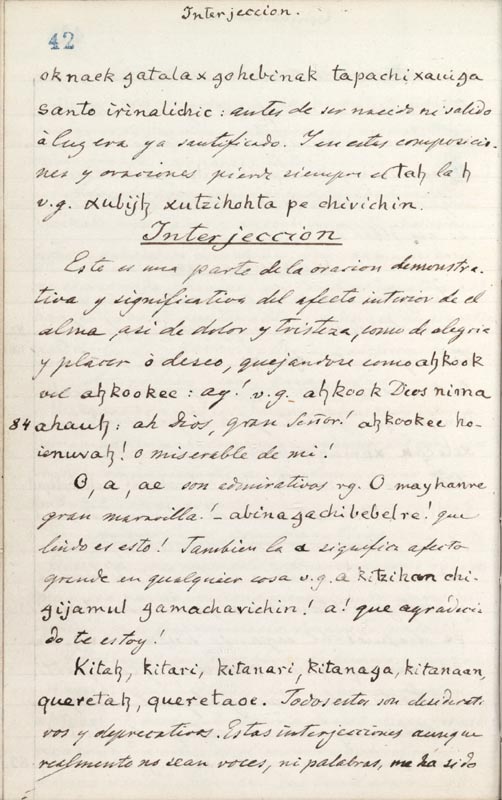 Interjeccion.
42
oknaek gatalax gohebinak tapachixauiga
santo irinalichic: antes de ser nacido ni salido
à luz era ya santificado. Y en estas composicio-
nes y oraciones pierde siempre el taꜧ la ꜧ
v.g. xubijꜧ xutzihohta pe chivichin.
Interjeccion
Este es una parte de la oracion demonstra-
tiva y significativa del afecto interior de el
alma, asi de dolor y tristeza, como de alegria
y placer ò deseo, quejandose como aꜧkook
vel aꜧkookee: ay! v.g. aꜧkook Dios nima
84 ahauꜧ: ah Dios, gran Señor! aꜧkookee ho-
ienuvaꜧ! o miserable de mi!
O, a, ae son admirativos vg. O mayhanre
gran maravilla! - abinagachibebelre! que
lindo es esto! Tambien la a significa afecto
grande en qualquier cosa v.g. a kitzihan chi-
gijamul gamachavichin! a! que agradeci-
do te estoy!
Kitaꜧ, kitari, kitanari, kitanaga, kitanaan,
queretaꜧ, queretaoe. Todos estos son desiderati-
vos y deprecativos. Estas interjecciones aunque
realmente no sean voces, ni palabras, ha sido